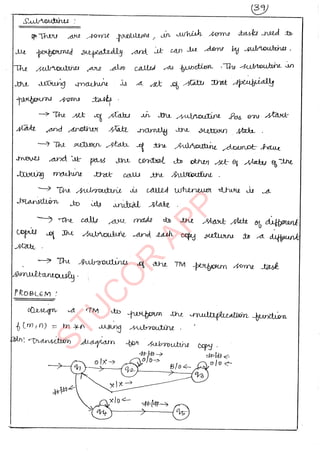 (39)
Subroutines :
* There are some problems, in which some tasks need to
be performed repeatedly and it can be done by subroutines.
The subroutines are also called as function. The subroutine in
the turing machine is a set of states that specifically
performs some tasks.
→ The set of states in the subroutine has one start
state and another state namely the return state.
→ The return state of the subroutine doesnot have
moves and it pass the control to other set of states of the
turing machine that calls the subroutine.
→ The subroutine is called whenever there is a
transition to its initial state.
→ The calls are made to the start state of different
copies of the subroutine and each copy returns to a different
state.
→ The subroutines of the TM perform some task
simultaneously.
PROBLEM :
Design a TM to perform the multiplication function
f(m,n) = m * n using subroutine.
Soln: Transition diagram for subroutine copy.
0/X → 0/0 → B/0 ← 0/0 ←
q1 q2 q3
X/X →
X/0 ←
q4 q5
STUCOR APP